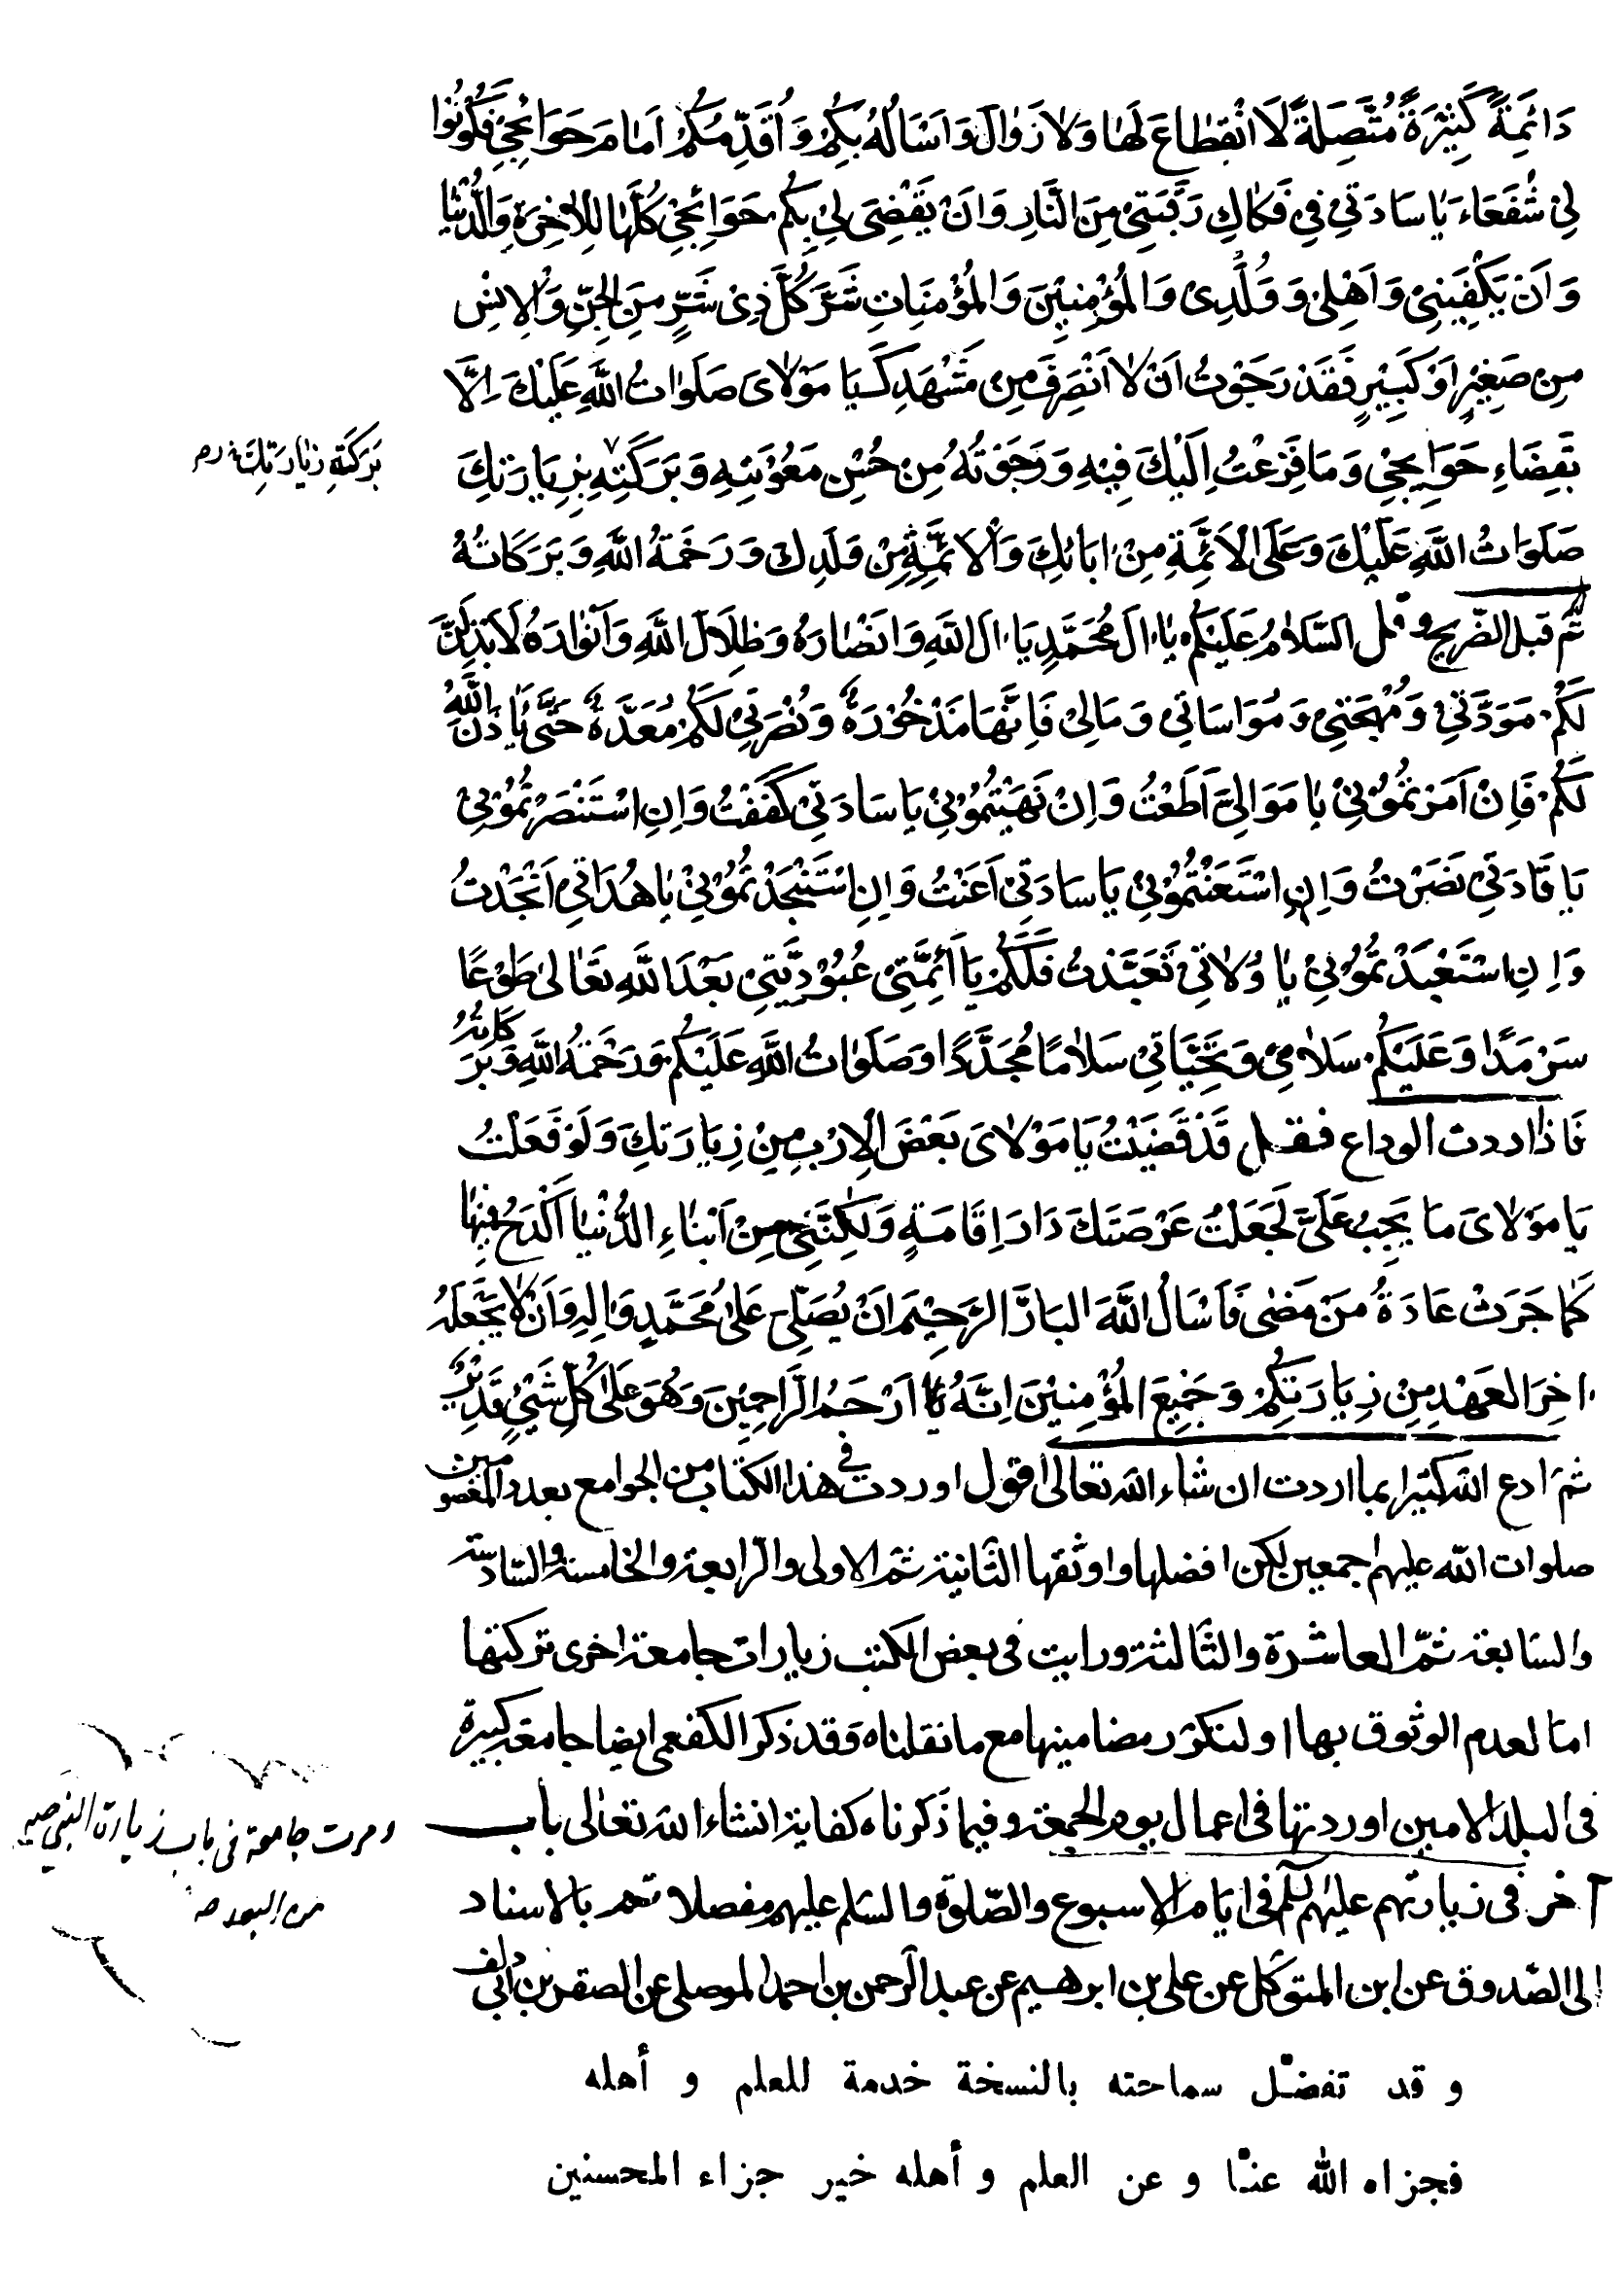 دَائِمَةً كَثِيْرَةً مُتَّصِلَةً لَا انْقِطَاعَ لَهَا وَلَا زَوَالَ وَاَسْاَلُهُ بِكُمْ وَاُقَدِّمُكُمْ اَمَامَ حَوَائِجِيْ فَكُوْنُوا
لِيْ شُفَعَاءَ يَا سَادَتِيْ فِي فَكَاكِ رَقَبَتِيْ مِنَ النَّارِ وَاَنْ يَقْضِيَ لِيْ بِكُمْ حَوَائِجِيْ كُلَّهَا لِلْاٰخِرَةِ وَالدُّنْيَا
وَاَنْ يَكْفِيَنِيْ وَاَهْلِيْ وَوُلْدِيْ وَالْمُؤْمِنِيْنَ وَالْمُؤْمِنَاتِ شَرَّ كُلِّ ذِيْ شَرٍّ مِنَ الْجِنِّ وَالْاِنْسِ
مِنْ صَغِيْرٍ اَوْ كَبِيْرٍ فَقَدْ رَجَوْتُ اَنْ لَا اَنْصَرِفَ مِنْ مَشْهَدِكَ يَا مَوْلَايَ صَلَوَاتُ اللّٰهِ عَلَيْكَ اِلَّا
بِقَضَاءِ حَوَائِجِيْ وَمَا فَزِعْتُ اِلَيْكَ فِيْهِ وَرَجَوْتُهُ مِنْ حُسْنِ مَعُوْنَتِهِ وَبَرَكَتِهِ بِزِيَارَتِكَ
بَرَكَةِ زِيَارَتِكَ
صَلَوَاتُ اللّٰهِ عَلَيْكَ وَعَلَى الْاَئِمَّةِ مِنْ اٰبَائِكَ وَالْاَئِمَّةِ مِنْ وَلَدِكَ وَرَحْمَةُ اللّٰهِ وَبَرَكَاتُهُ
ثُمّ قبل الضّريح وقل السَّلَامُ عَلَيْكُمْ يَا اٰلَ مُحَمَّدٍ يَا اٰلَ اللّٰهِ وَاَنْصَارَهُ وَظِلَالَ اللّٰهِ وَاَنْوَارَهُ لَاَبْذُلَنَّ
لَكُمْ مَوَدَّتِيْ وَمُهْجَتِيْ وَمُوَاسَاتِي وَمَالِيْ فَاِنَّهَا مَذْخُوْرَةٌ وَنُصْرَتِيْ لَكُمْ مُعَدَّةٌ حَتّٰى يَاْذَنَ اللّٰهُ
لَكُمْ فَاِنْ اَمَرْتُمُوْنِيْ يَا مَوَالِيَّ اَطَعْتُ وَاِنْ نَهَيْتُمُوْنِيْ يَا سَادَتِيْ كَفَفْتُ وَاِنِ اسْتَنْصَرْتُمُوْنِيْ
يَا قَادَتِيْ نَصَرْتُ وَاِنِ اسْتَعَنْتُمُوْنِيْ يَا سَادَتِيْ اَعَنْتُ وَاِنِ اسْتَنْجَدْتُمُوْنِيْ يَا هُدَاتِيْ اَنْجَدْتُ
وَاِنِ اسْتَعْبَدْتُمُوْنِيْ يَا وُلَاتِيْ تَعَبَّدْتُ فَلَكُمْ يَا اَئِمَّتِيْ عُبُوْدِيَّتِيْ بَعْدَ اللّٰهِ تَعَالٰى طَوْعًا
سَرْمَدًا وَعَلَيْكُمْ سَلَامِيْ وَتَحِيَّاتِيْ سَلَامًا مُجَدَّدًا وَصَلَوَاتُ اللّٰهِ عَلَيْكُمْ وَرَحْمَةُ اللّٰهِ وَبَرَكَاتُهُ
فَاذا اردت الوداع فقل قَدْ قَضَيْتُ يَا مَوْلَايَ بَعْضَ الْاِرْبِ مِنْ زِيَارَتِكَ وَلَوْ فَعَلْتُ
يَا مَوْلَايَ مَا يَجِبُ عَلَيَّ لَجَعَلْتُ عَرْصَتَكَ دَارَ اِقَامَةٍ وَلٰكِنَّنِيْ مِنْ اَبْنَاءِ الدُّنْيَا اَكْدَحُ فِيْهَا
كَمَا جَرَتْ عَادَةُ مَنْ مَضٰى فَاَسْاَلُ اللّٰهَ الْبَارَّ الرَّحِيْمَ اَنْ يُصَلِّيَ عَلٰى مُحَمَّدٍ وَاٰلِهِ وَاَنْ لَا يَجْعَلَهُ
اٰخِرَ الْعَهْدِ مِنْ زِيَارَتِكُمْ وَجَمِيْعَ الْمُؤْمِنِيْنَ اِنَّهُ يَا اَرْحَمُ الرَّاحِمِيْنَ وَهُوَ عَلٰى كُلِّ شَيْءٍ قَدِيْرٌ
ثمّ ادع اللّه كثيرا بما اردت ان شاء اللّه تعالى اقول اوردت في هذا الكتاب من الجوامع بعدد المعصومين
صلوات اللّه عليهم اجمعين لكن افضلها واوثقها الثّانية ثمّ الاولى والرّابعة والخامسة والسّادسة
والسّابعة ثمّ العاشرة والثّالثة ورايت في بعض الكتب زيارات جامعة اخرى تركتها
امّا لعدم الوثوق بها او لتكرّر مضامينها مع ما نقلناه وقد ذكر الكفعمي ايضا جامعة كبيرة
في البلد الامين اوردتها في اعمال يوم الجمعة وفيما ذكرناه كفاية انشاء اللّه تعالى باب
ومرت جامعة في باب زيارة النبي ص
من البعد
آخر في زيارتهم عليهم السّلم في ايّام الاسبوع والصّلوة والسّلم عليهم مفصلا تهم بالاسناد
الى الصّدوق عن ابن المتوكّل عن علي بن ابرهيم عن عبد الرّحمن بن احمد الموصلي عن الصقر بن ابي دلف
و قد تفضّل سماحته بالنسخة خدمة للعلم و أهله
فجزاه اللّه عنّا و عن العلم و أهله خير جزاء المحسنين